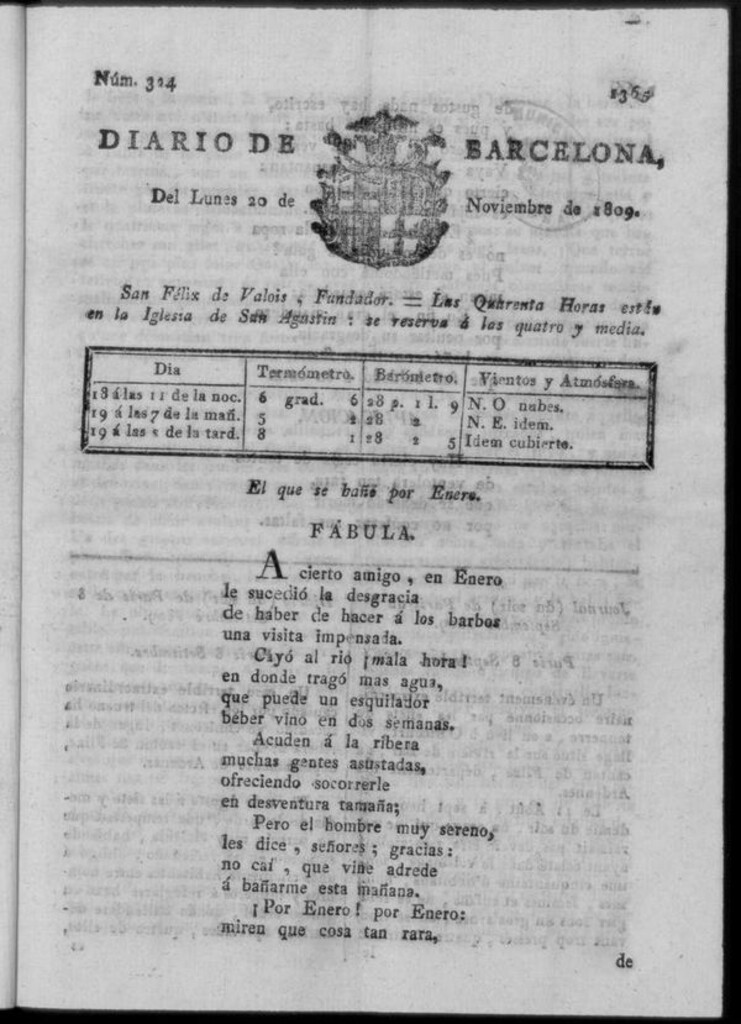 Núm. 324
1365
DIARIO DE BARCELONA,
Del Lunes 20 de Noviembre de 1809.
San Félix de Valois, Fundador. = Las Quarenta Horas están
en la Iglesia de San Agustin: se reserva á las quatro y media.
Dia Termómetro. Barómetro. Vientos y Atmósfera.
18 á las 11 de la noc. 6 grad. 6 28 p. 1 l. 9 N. O nubes.
19 á las 7 de la mañ. 5 2 28 2 N. E. idem.
19 á las 2 de la tard. 8 1 28 2 5 Idem cubierto.
El que se bañó por Enero.
FÁBULA.
A cierto amigo, en Enero
le sucedió la desgracia
de haber de hacer á los barbos
una visita impensada.
Cayó al rio ¡mala hora!
en donde tragó mas agua,
que puede un esquilador
beber vino en dos semanas.
Acuden á la ribera
muchas gentes asustadas,
ofreciendo socorrerle
en desventura tamaña;
Pero el hombre muy sereno,
les dice, señores; gracias:
no caí, que vine adrede
á bañarme esta mañana.
¡Por Enero! por Enero:
miren que cosa tan rara,
de